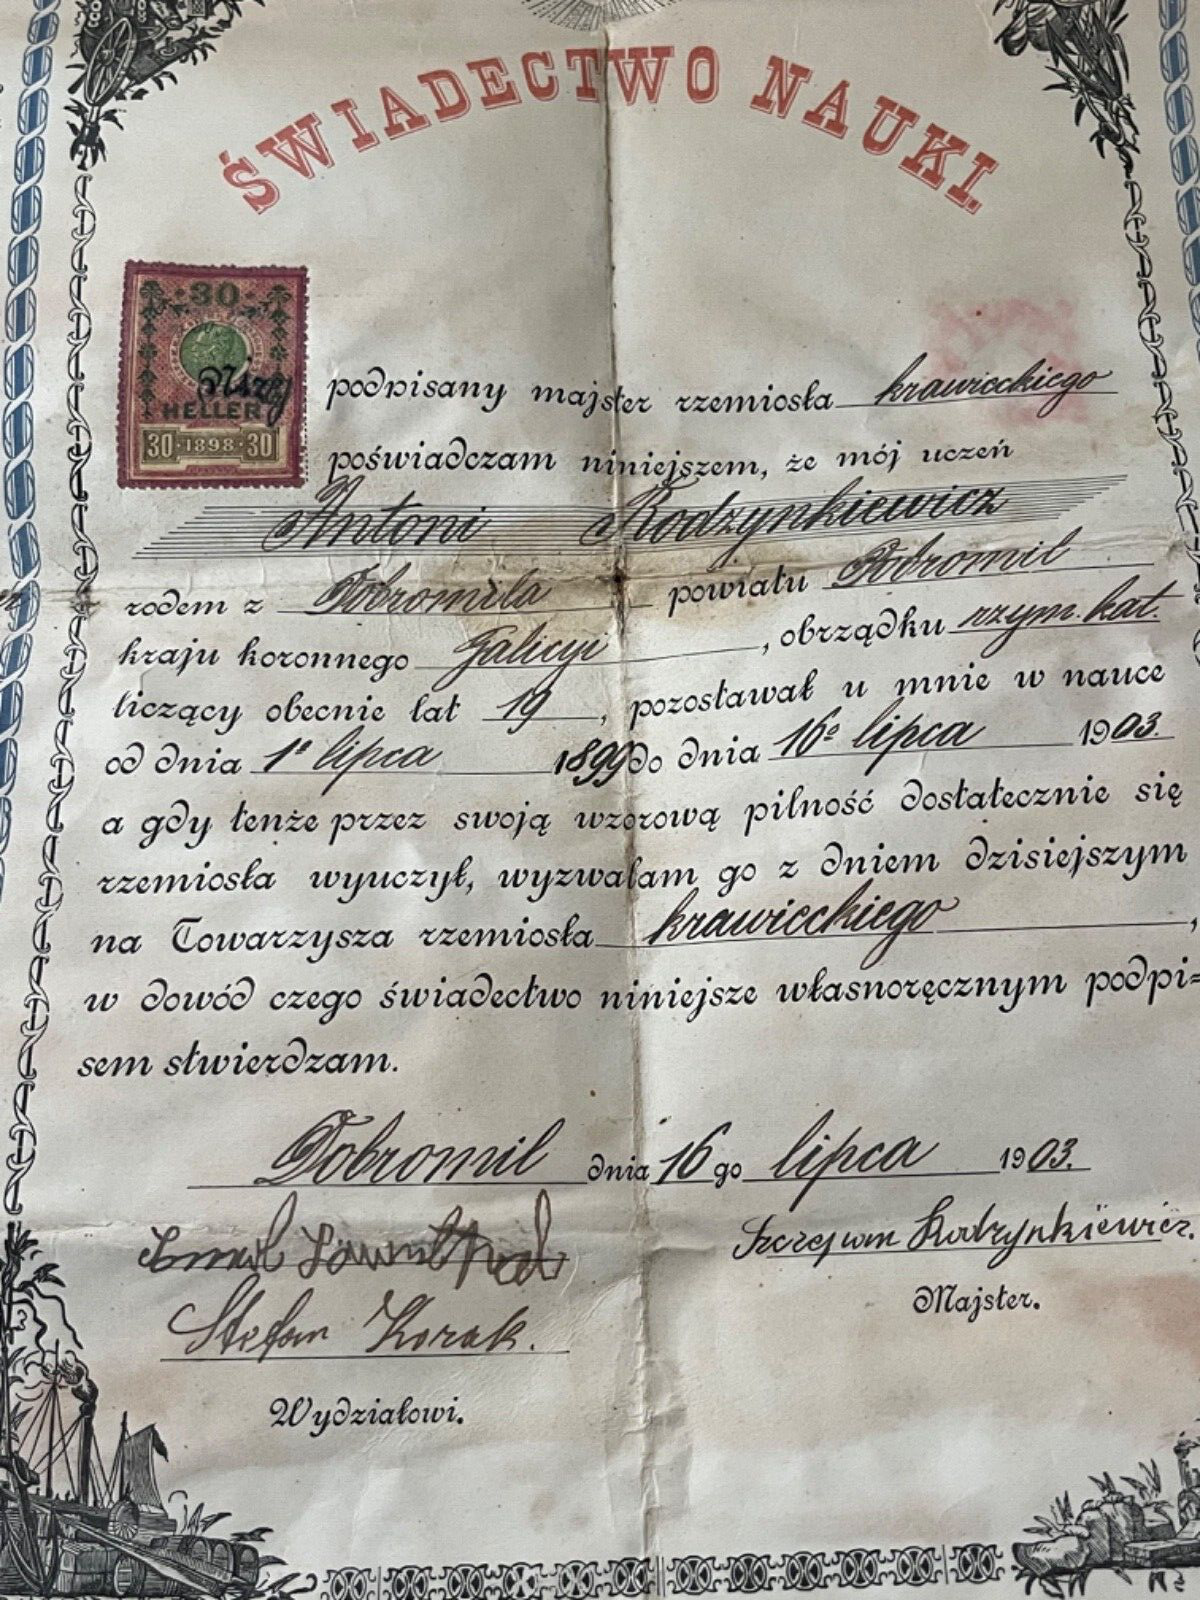 ŚWIADECTWO NAUKI.
30
HELLER
30 · 1898 · 30
Niżej podpisany majster rzemiosła krawieckiego
poświadczam niniejszem, że mój uczeń
Antoni Rodzynkiewicz
rodem z Dobromila powiatu Dobromil
kraju koronnego Galicyi, obrządku rzym. kat.
liczący obecnie lat 19, pozostawał u mnie w nauce
od dnia 1º lipca 1899 do dnia 16º lipca 1903.
a gdy tenże przez swoją wzorową pilność dostatecznie się
rzemiosła wyuczył, wyzwalam go z dniem dzisiejszym
na Towarzysza rzemiosła krawieckiego,
w dowód czego świadectwo niniejsze własnoręcznym podpi=
sem stwierdzam.
Dobromil dnia 16 go lipca 1903.
Rodzynkiewicz.
Stefan Korak.
Majster.
Wydziałowi.